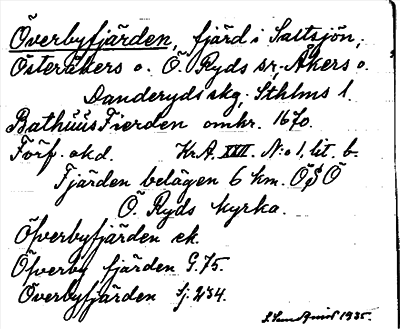 Överbyfjärden, fjärd i Saltsjön,
Österåkers o. Ö. Ryds sr, Åkers o.
Danderyds skg, Sthlms l.
Bathúús Fierden omkr. 1670.
Förf. okd. Kr.A. XVII. N:o 1, lit. b.
Fjärden belägen 6 km. ÖSÖ
Ö. Ryds kyrka.
Öfverbyfjärden ek.
Öfverby fjärden G. 75.
Överbyfjärden Sj. 234.
1935.